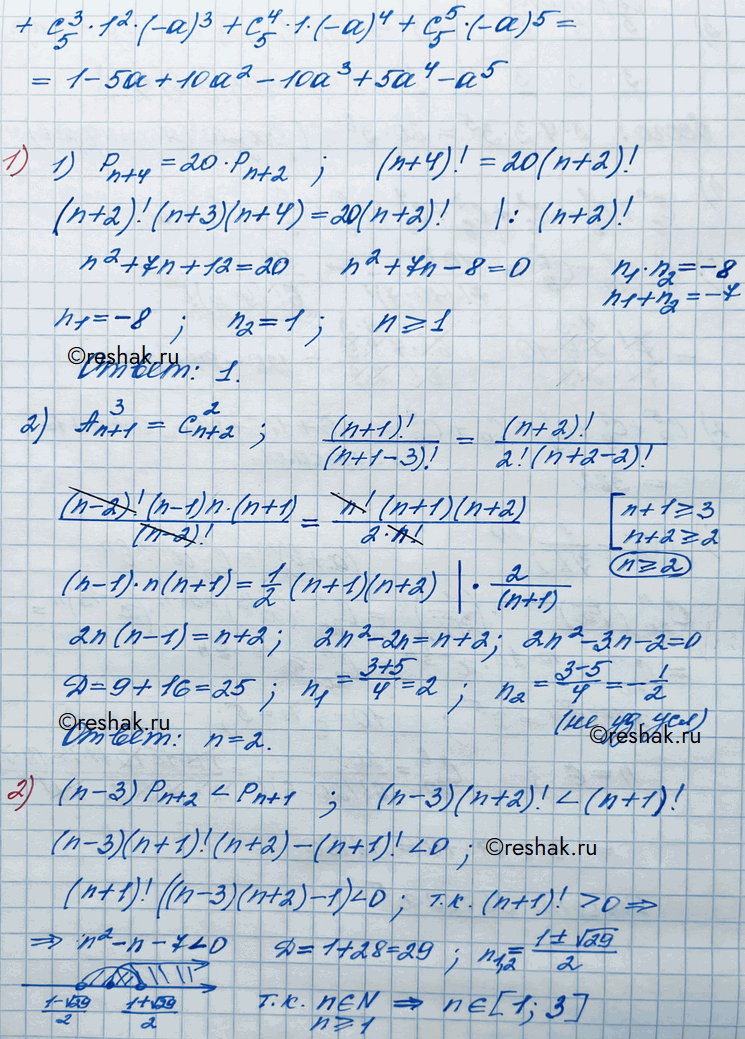 + C₅³·1²·(-a)³ + C₅⁴·1·(-a)⁴ + C₅⁵·(-a)⁵ =
= 1 - 5a + 10a² - 10a³ + 5a⁴ - a⁵
1) 1) Pₙ₊₄ = 20·Pₙ₊₂ ; (n+4)! = 20(n+2)!
(n+2)!(n+3)(n+4) = 20(n+2)! |: (n+2)!
n² + 7n + 12 = 20 n² + 7n - 8 = 0 n₁·n₂ = -8
n₁+n₂ = -7
n₁ = -8 ; n₂ = 1 ; n ≥ 1
©reshak.ru
Ответ: 1.
2) A³ₙ₊₁ = C²ₙ₊₂ ; (n+1)!/(n+1-3)! = (n+2)!/2!(n+2-2)!
(n-2)!(n-1)n·(n+1)/(n-2)! = n!(n+1)(n+2)/2·n! [n+1 ≥ 3
n+2 ≥ 2
n ≥ 2
(n-1)·n(n+1) = 1/2 (n+1)(n+2) |· 2/(n+1)
2n(n-1) = n+2; 2n²-2n = n+2; 2n²-3n-2 = 0
D = 9+16 = 25 ; n₁ = 3+5/4 = 2 ; n₂ = 3-5/4 = -1/2
(не уд. усл)
©reshak.ru
©reshak.ru
Ответ: n = 2.
2) (n-3)Pₙ₊₂ < Pₙ₊₁ ; (n-3)(n+2)! < (n+1)!
(n-3)(n+1)!(n+2) - (n+1)! < 0 ; ©reshak.ru
(n+1)!((n-3)(n+2)-1) < 0 ; т.к. (n+1)! > 0 ⇒
⇒ n² - n - 7 < 0 D = 1+28 = 29 ; n₁,₂ = 1±√29/2
1-√29/2 1+√29/2 т.к. n∈N ⇒ n∈[1; 3]
n ≥ 1